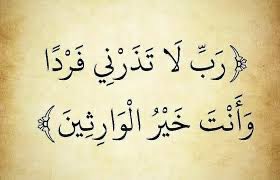 ﴿رَبِّ لَا تَذَرْنِي فَرْدًا
وَأَنْتَ خَيْرُ الْوَارِثِينَ﴾